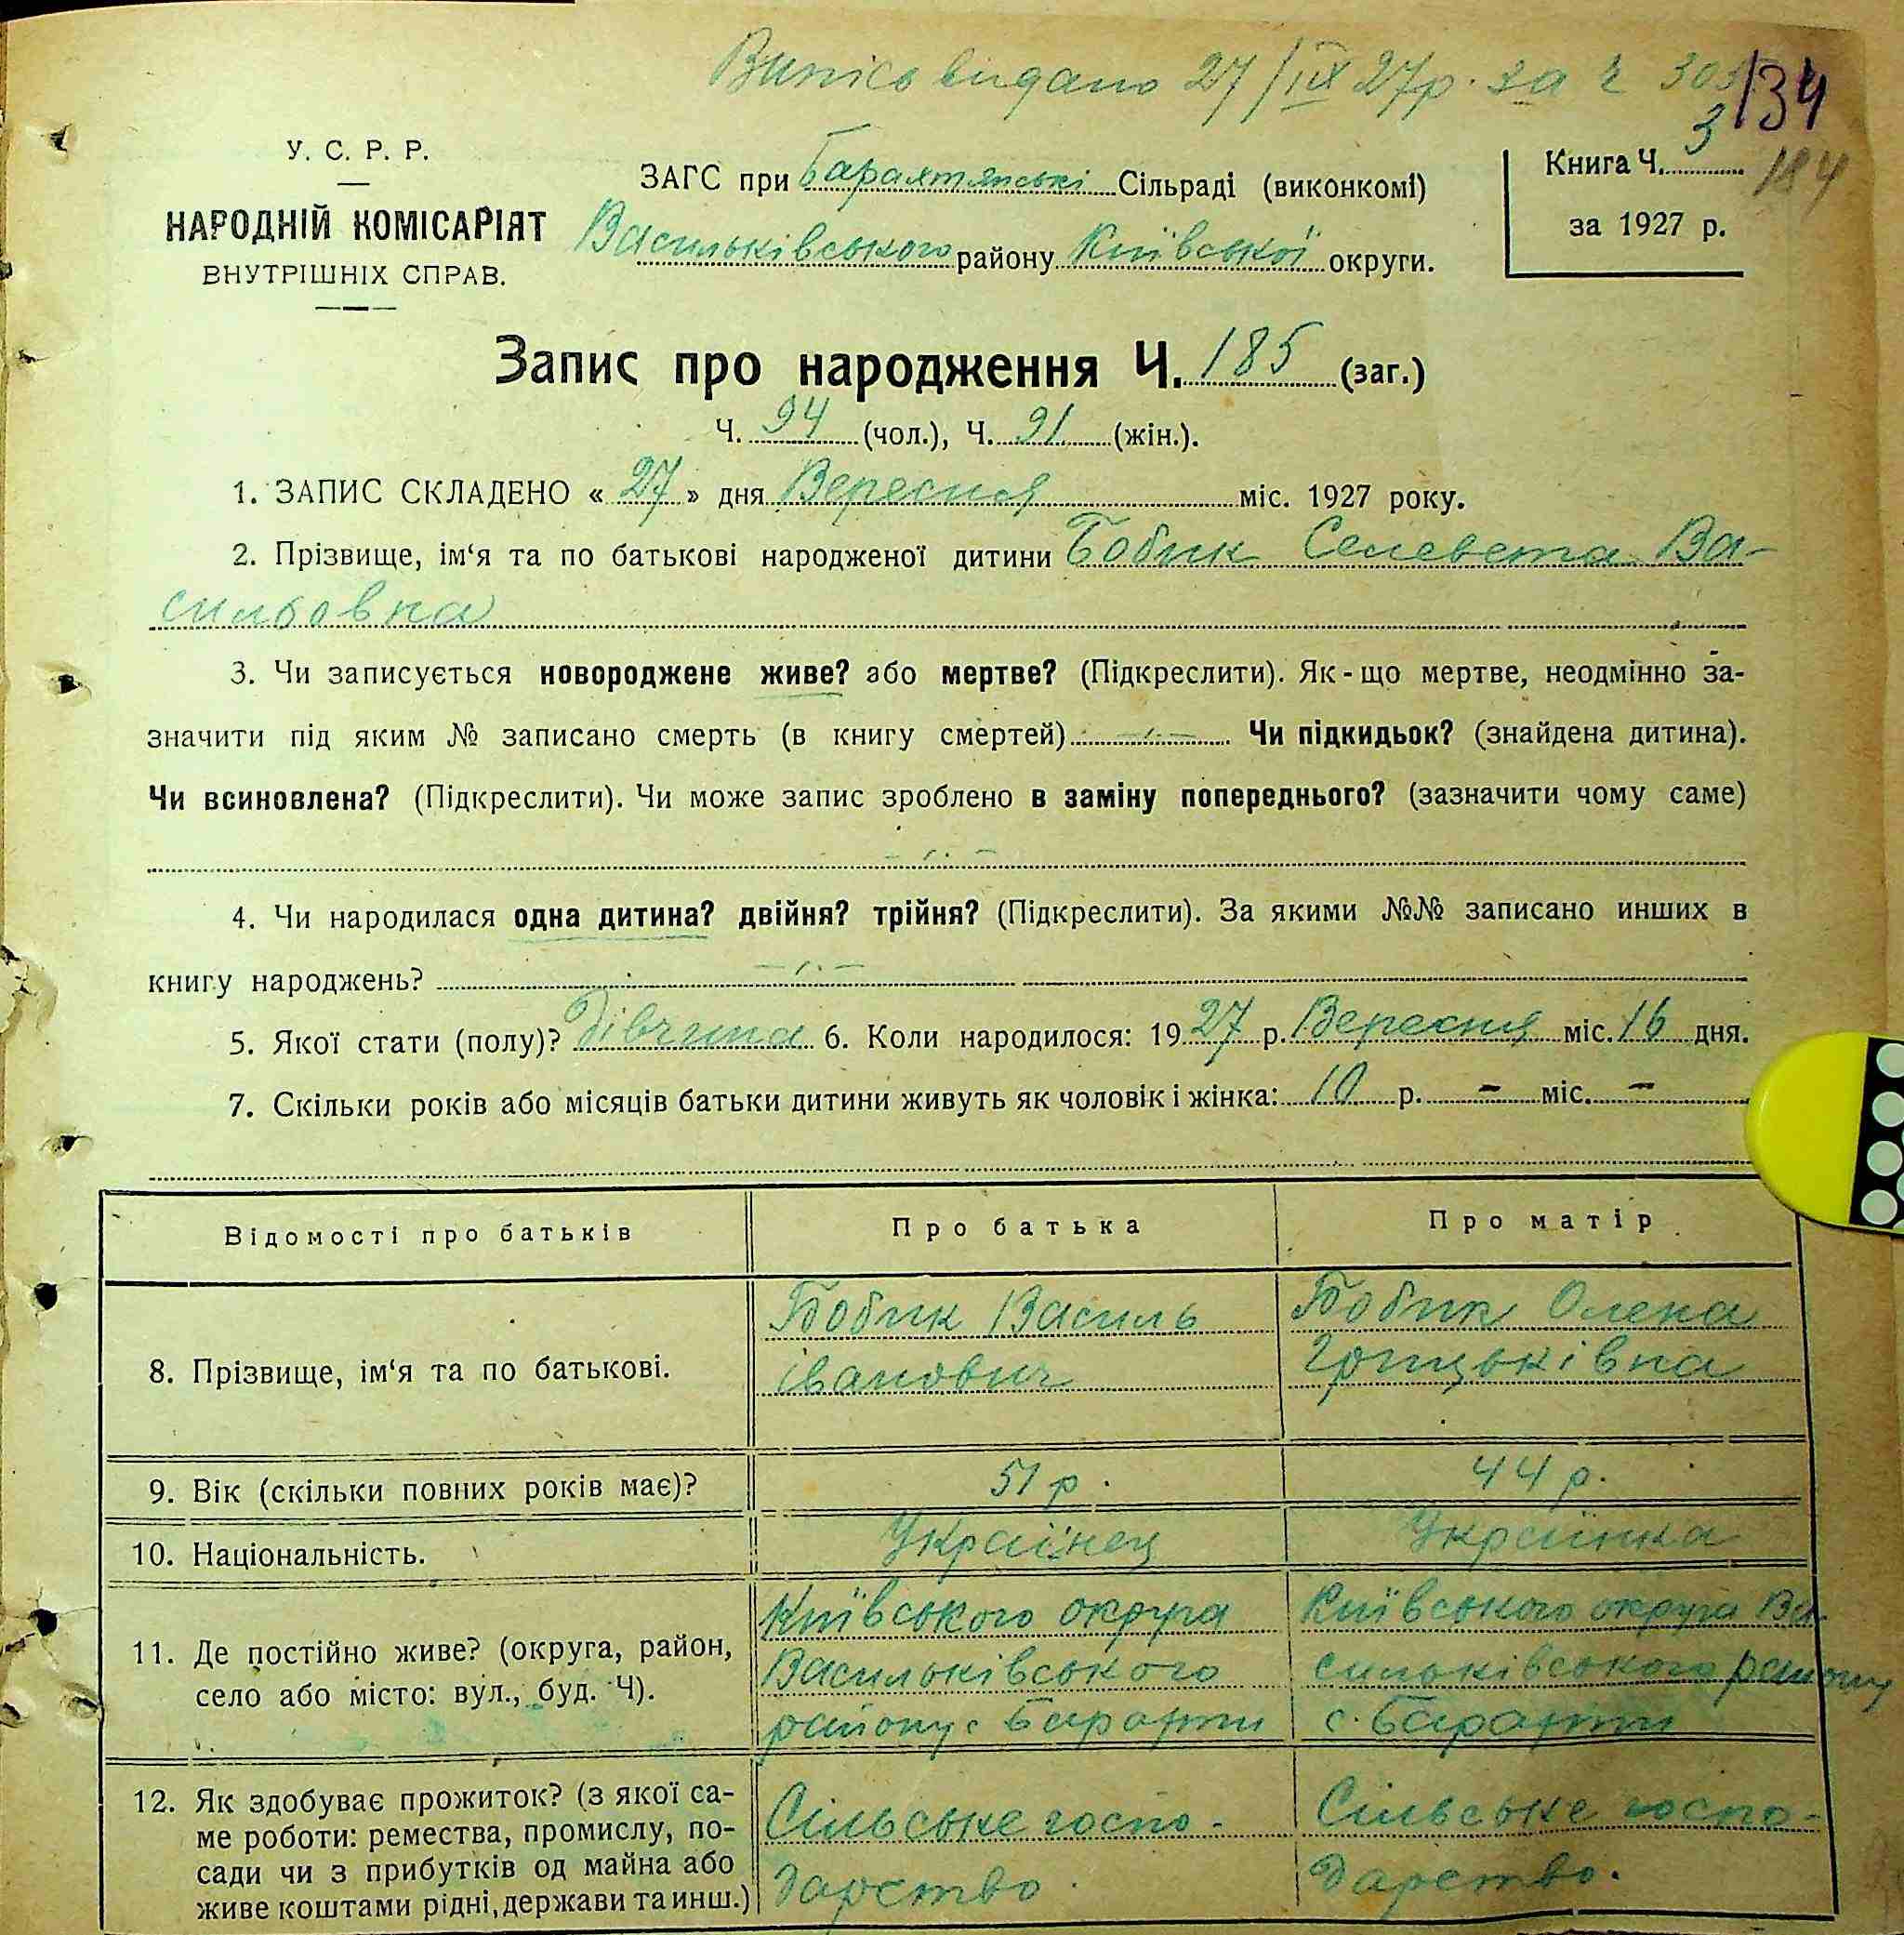 Випісь видано 27/ІХ 27р. за ч 305
134
184
У. С. Р. Р.
НАРОДНІЙ КОМІСАРІЯТ
ВНУТРІШНІХ СПРАВ.
ЗАГС при Барахтянські Сільраді (виконкомі)
Васильківського району Київської округи.
Книга Ч. 3
за 1927 р.
Запис про народження Ч. 185 (заг.)
Ч. 94 (чол.), Ч. 91 (жін.).
1. ЗАПИС СКЛАДЕНО « 27 » дня Вересня міс. 1927 року.
2. Прізвище, ім‘я та по батькові народженої дитини Бобик Селевета Ва-
сильовна
3. Чи записується новороджене живе? або мертве? (Підкреслити). Як-що мертве, неодмінно за-
значити під яким № записано смерть (в книгу смертей) Чи підкидьок? (знайдена дитина).
Чи всиновлена? (Підкреслити). Чи може запис зроблено в заміну попереднього? (зазначити чому саме)
4. Чи народилася одна дитина? двійня? трійня? (Підкреслити). За якими №№ записано инших в
книгу народжень?
5. Якої стати (полу)? дівчина 6. Коли народилося: 1927 р. Вересня міс. 16 дня.
7. Скільки років або місяців батьки дитини живуть як чоловік і жінка: 10 р. - міс. -
Відомості про батьків Про батька Про матір
8. Прізвище, ім‘я та по батькові.
Бобик Василь
іванович
Бобик Олена
Грицьківна
9. Вік (скільки повних років має)? 51 р. 44 р.
10. Національність. Українец Українка
11. Де постійно живе? (округа, район,
село або місто: вул., буд. Ч).
Київського округа
Васильківського
району с Барахти
Київського округа Ва-
сильківського району
с. Барахти
12. Як здобуває прожиток? (з якої са-
ме роботи: ремества, промислу, по-
сади чи з прибутків од майна або
живе коштами рідні, держави та инш.)
Сільське госпо-
дарство.
Сільське госпо-
дарство.